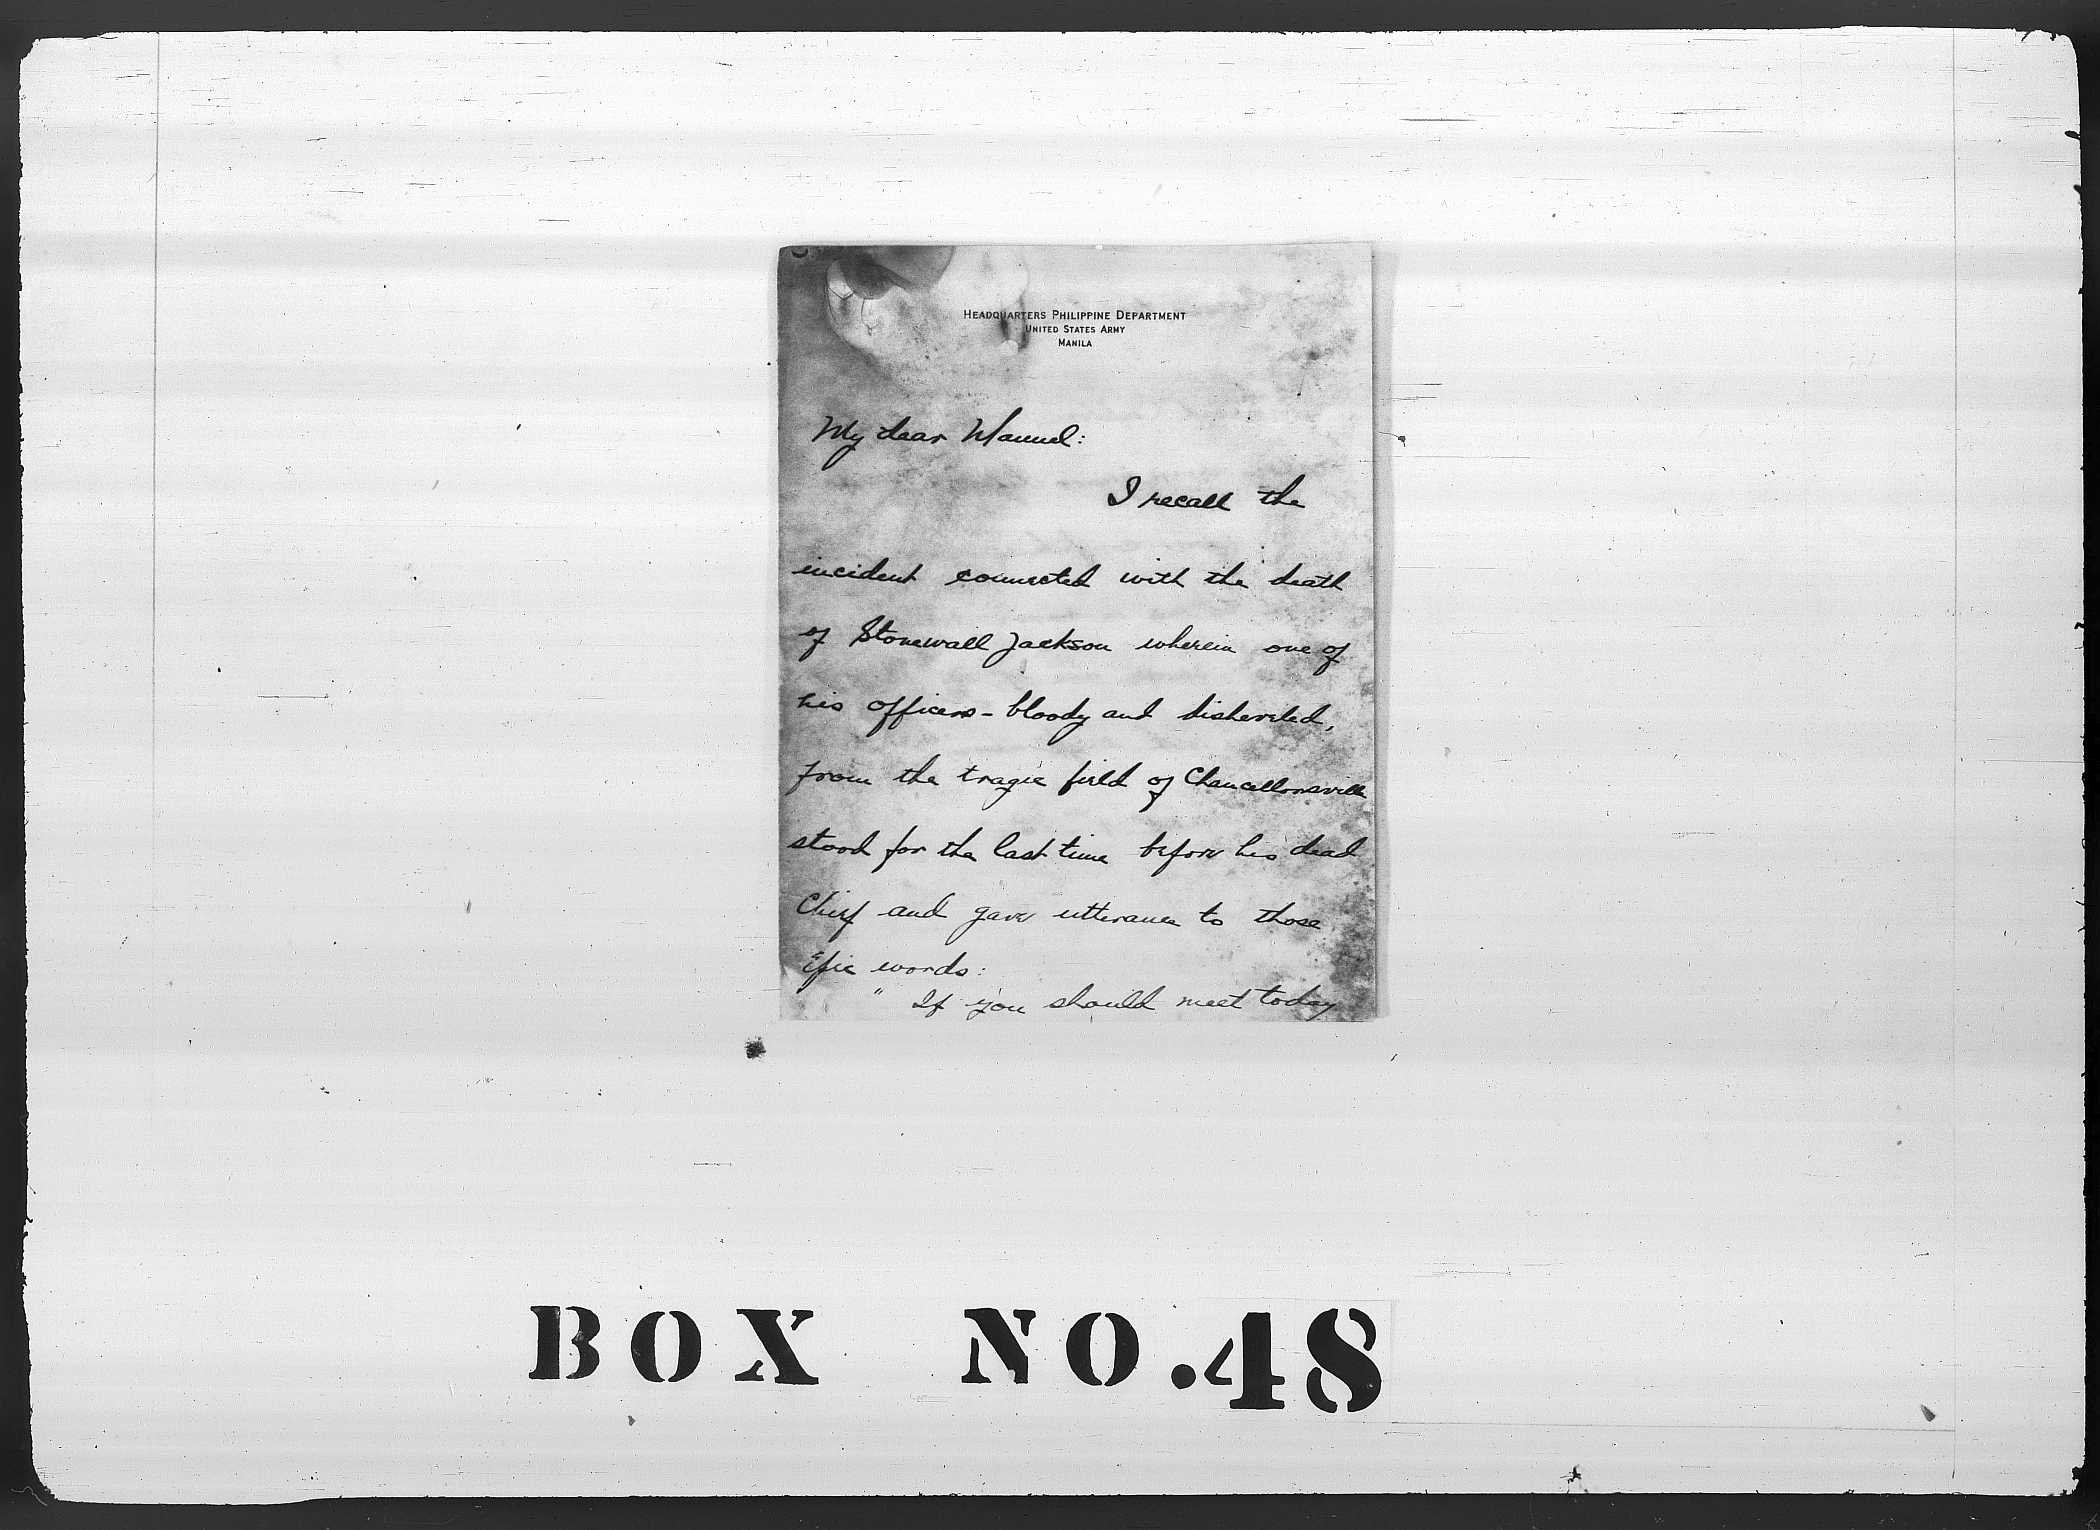 HEADQUARTERS PHILIPPINE DEPARTMENT
UNITED STATES ARMY
MANILA
My dear Manuel:
I recall the
incident connected with the death
of Stonewall Jackson wherein one of
his officers - bloody and disheveled,
from the tragic field of Chancellorsville
stood for the last time before his dead
Chief and gave utterance to those
Epic words:
" If you should meet today
BOX NO. 48